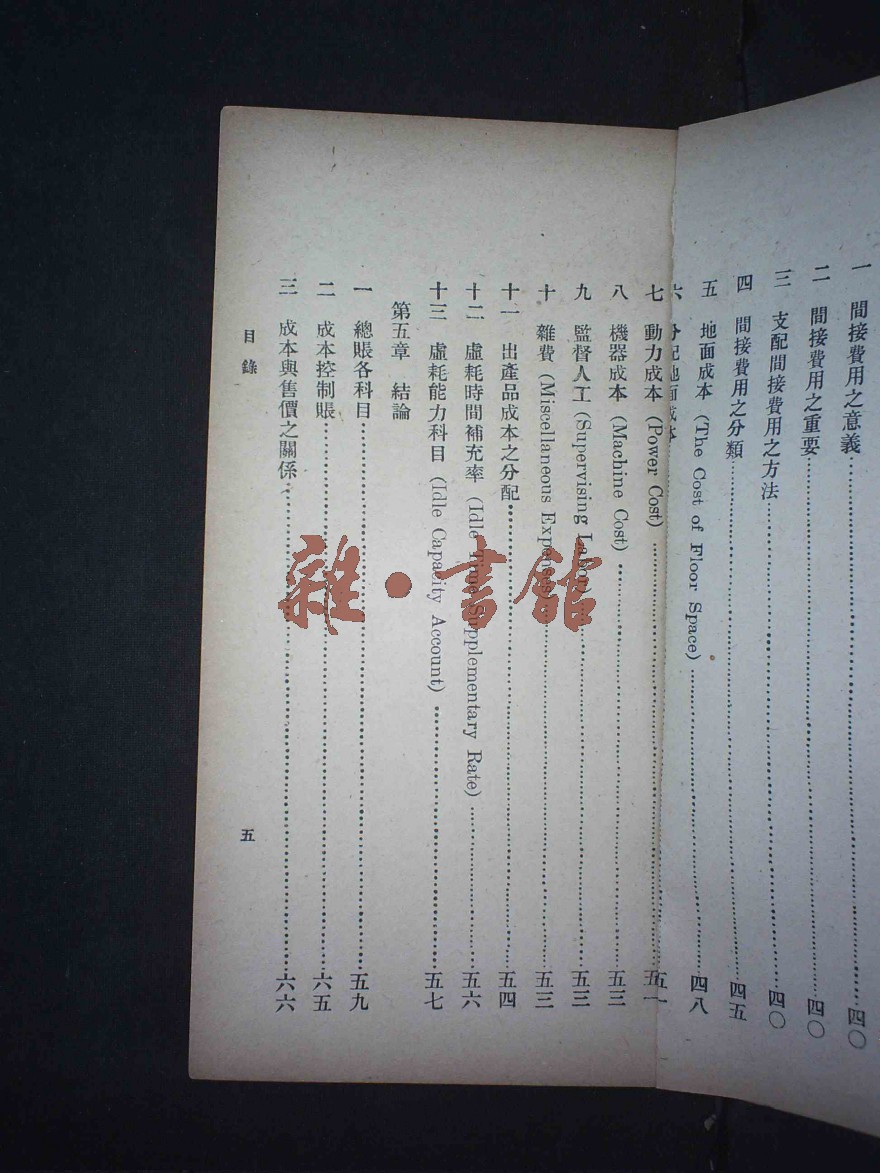 一 間接費用之意義……四〇
二 間接費用之重要……四〇
三 支配間接費用之方法……四〇
四 間接費用之分類……四五
五 地面成本 (The Cost of Floor Space)……四八
六 分配地面成本……
七 動力成本 (Power Cost)……五一
八 機器成本 (Machine Cost)……五三
九 監督人工 (Supervising Labor)……五三
十 雜費 (Miscellaneous Expenses)……五三
十一 出產品成本之分配……五四
十二 虛耗時間補充率 (Idle Time Supplementary Rate)……五六
十三 虛耗能力科目 (Idle Capacity Account)……五七
第五章 結論
一 總賬各科目……五九
二 成本控制賬……六五
三 成本與售價之關係……六六
目錄
五
雜·書館